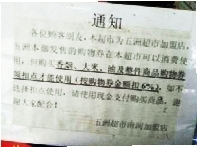 通知
各位顾客朋友:本超市为五洲超市加盟店,
五洲本部发售的购物券在本超市可以消费使
用,但购买香烟、大米、油及整件商品购物券
需扣点才能使用(按购物金额扣6%),如不
选择扣点使用,请使用现金支付购买商品,谢
谢大家配合!
五洲超市南河加盟店